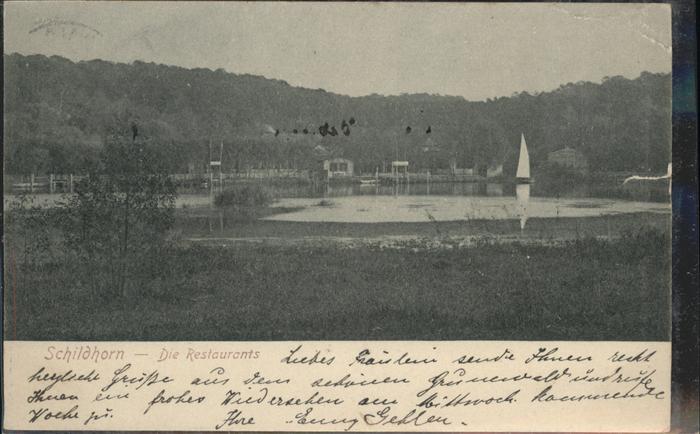 Schildhorn — Die Restaurants
Liebes Fräulein sende Ihnen recht
herzliche Grüße aus dem schönen Grunewald und rufe
Ihnen ein frohes Wiedersehen am Mittwoch kommende
Woche zu. Ihre Emmy Gehlen.